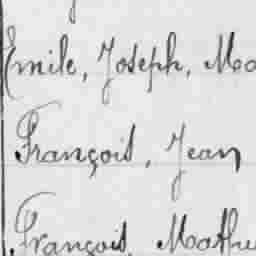 Emile, Joseph, Ma
François, Jean
François, Mathu